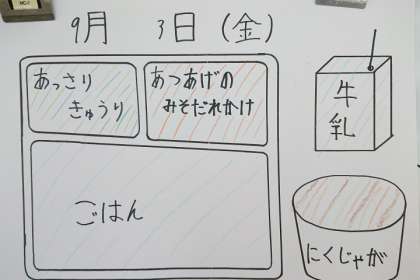 9月 3日 (金)
あっさり
きゅうり
あつあげの
みそだれかけ
牛
乳
ごはん
にくじゃが